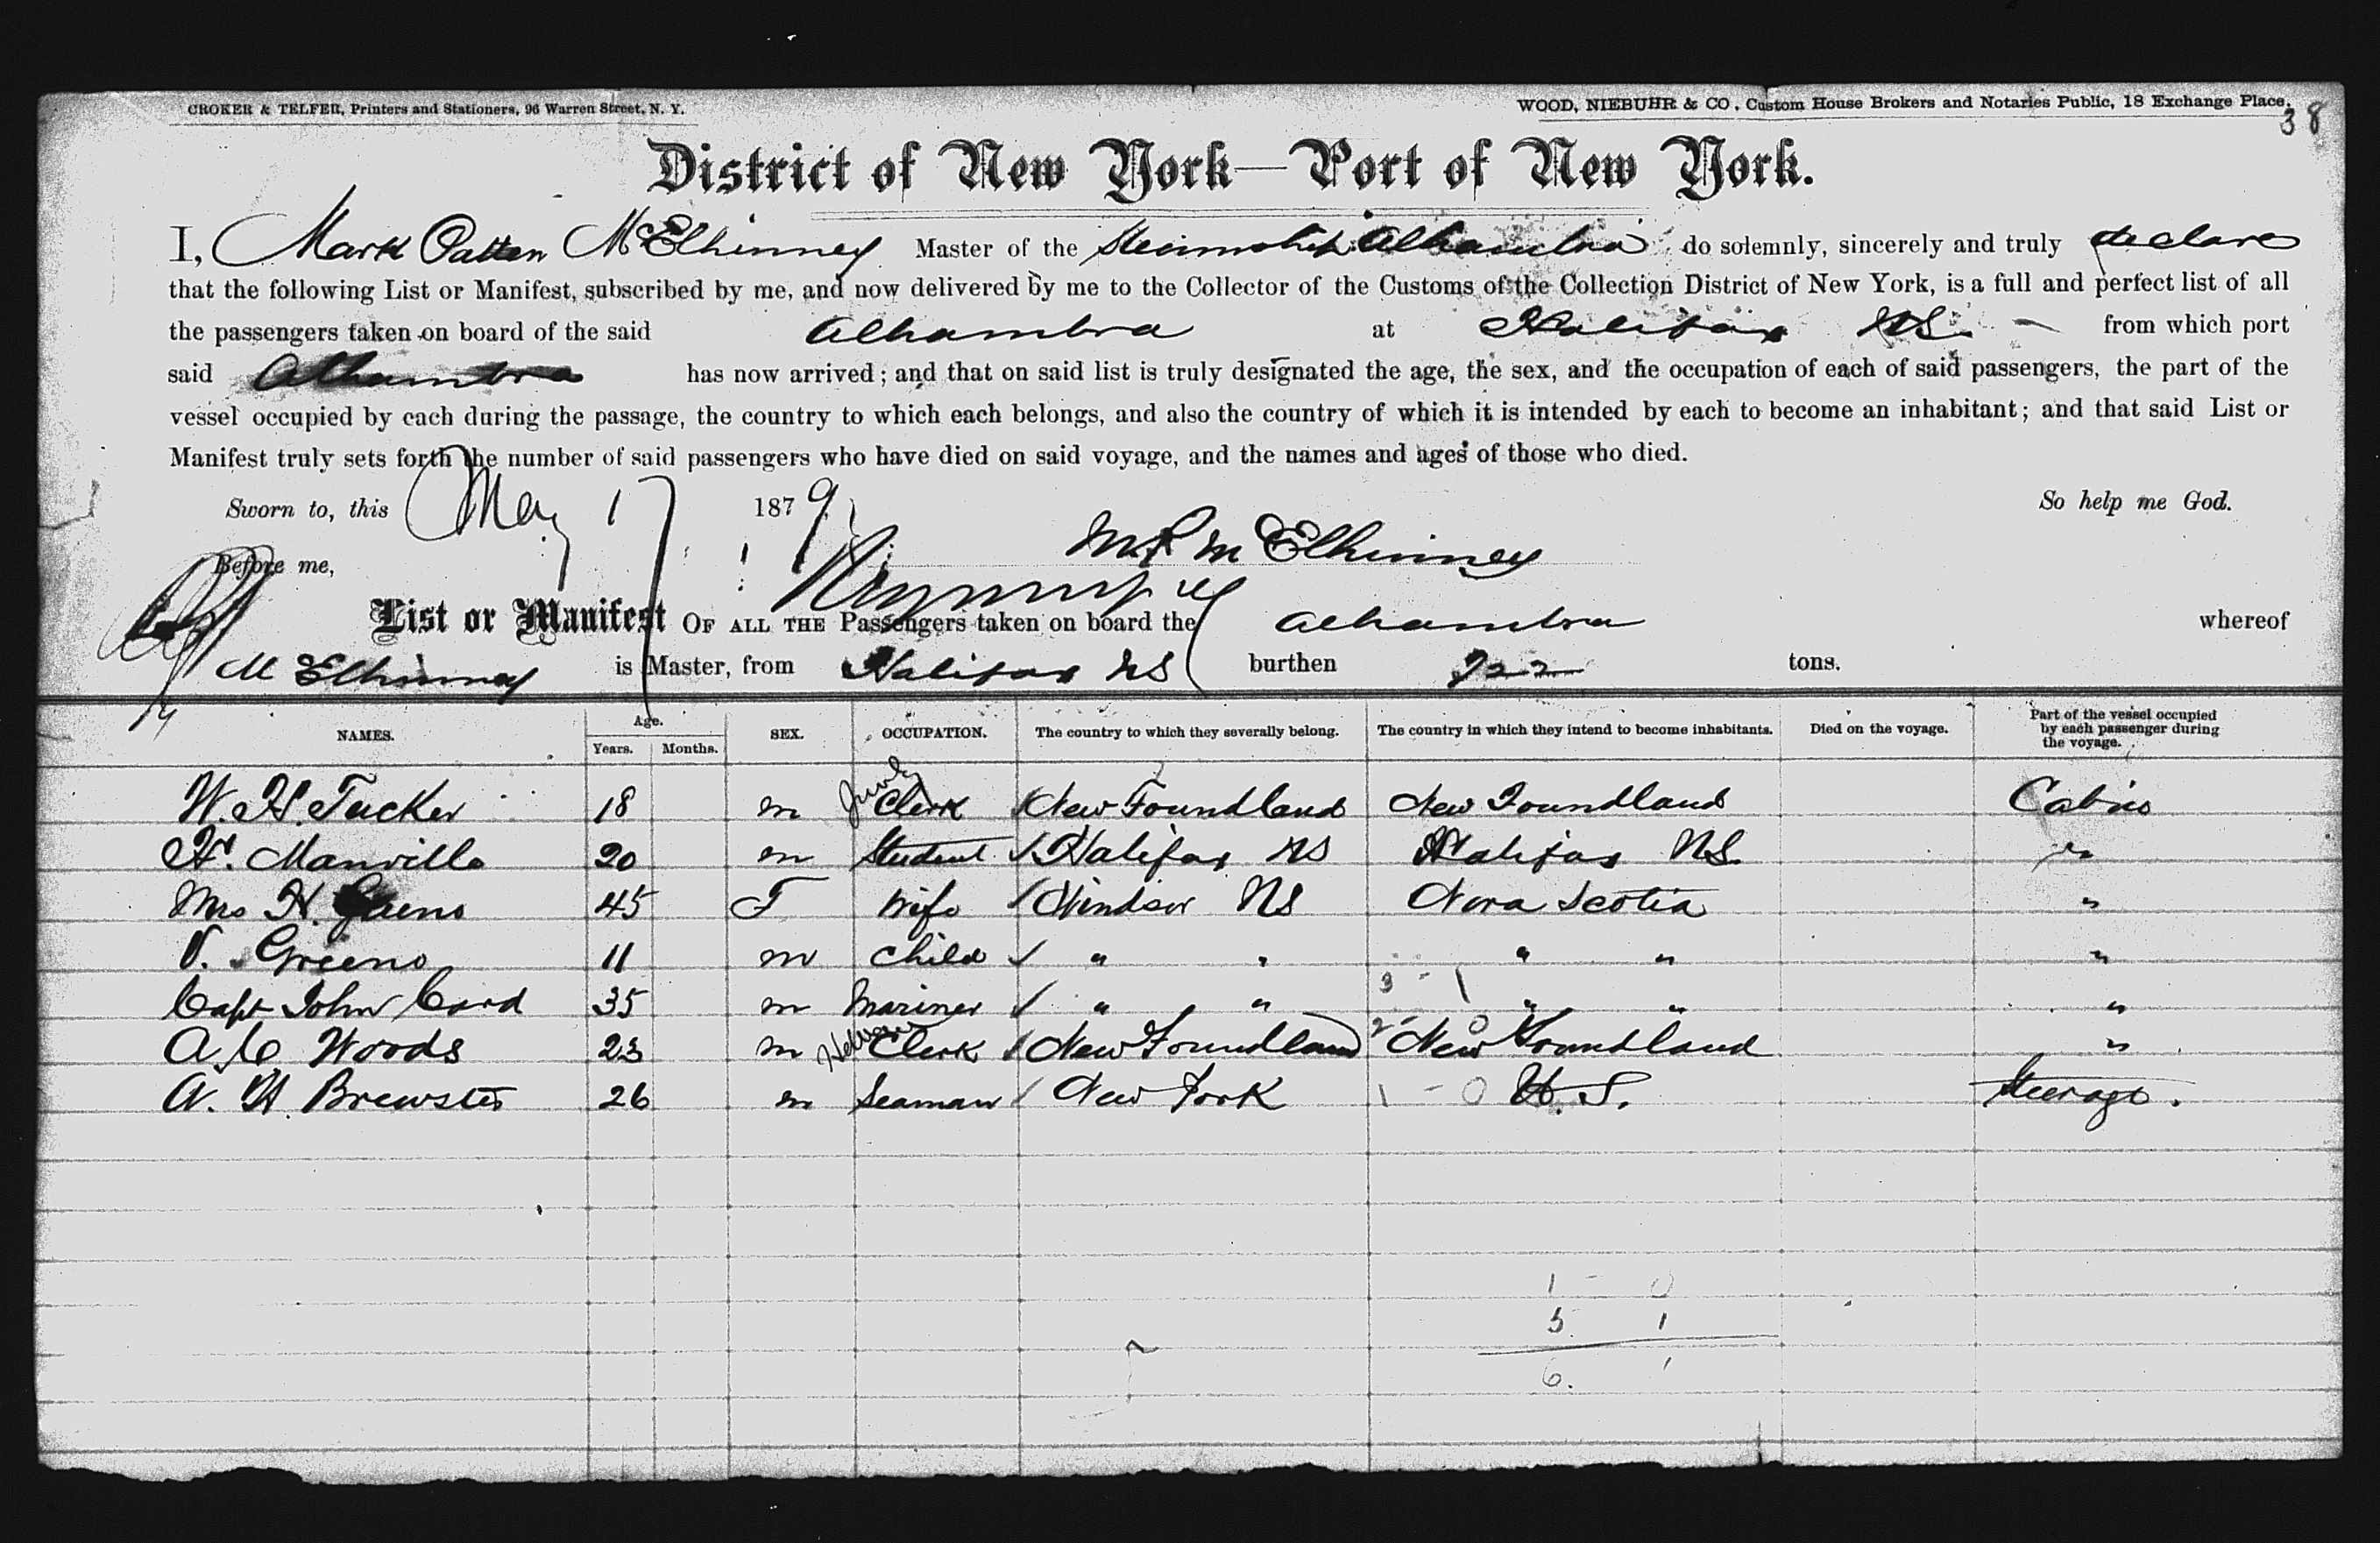 CROKER & TELFER, Printers and Stationers, 96 Warren Street, N. Y.
WOOD, NIEBUHR & CO, Custom House Brokers and Notaries Public, 18 Exchange Place.
38
District of New York—Port of New York.
I, Mark Patten McElhinney Master of the Steamship Alhambra do solemnly, sincerely and truly declare
that the following List or Manifest, subscribed by me, and now delivered by me to the Collector of the Customs of the Collection District of New York, is a full and perfect list of all
the passengers taken on board of the said Alhambra at Halifax NS. from which port
said Alhambra has now arrived; and that on said list is truly designated the age, the sex, and the occupation of each of said passengers, the part of the
vessel occupied by each during the passage, the country to which each belongs, and also the country of which it is intended by each to become an inhabitant; and that said List or
Manifest truly sets forth the number of said passengers who have died on said voyage, and the names and ages of those who died.
Sworn to, this May 17 1879 So help me God.
M P McElhinney
Before me,
List or Manifest OF ALL THE Passengers taken on board the Alhambra whereof
McElhinney is Master, from Halifax NS burthen 722 tons.
NAMES. Age. Years. Months. SEX. OCCUPATION. The country to which they severally belong. The country in which they intend to become inhabitants. Died on the voyage. Part of the vessel occupied by each passenger during the voyage.
W. H. Tucker 18 m Clerk New Foundland New Foundland Cabin
H. Manville 20 m Student Halifax NS Halifax NS. "
Mrs H. Greeno 45 F Wife Windsor NS Nova Scotia "
V. Greeno 11 m Child " " " " "
Capt John Card 35 m Mariner " " 3 - 1 " " "
A C Woods 23 m Clerk New Foundland 2 - 0 New Foundland "
A. H. Brewster 26 m Seaman New York 1 - 0 U. S. Steerage.
1 - 0
5 1
6. 1